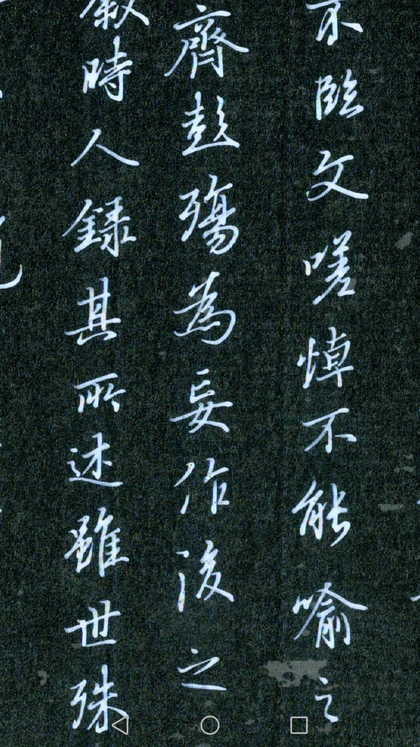 不臨文嗟悼不能喻之
齊彭殤為妄作後之
敘時人錄其所述雖世殊